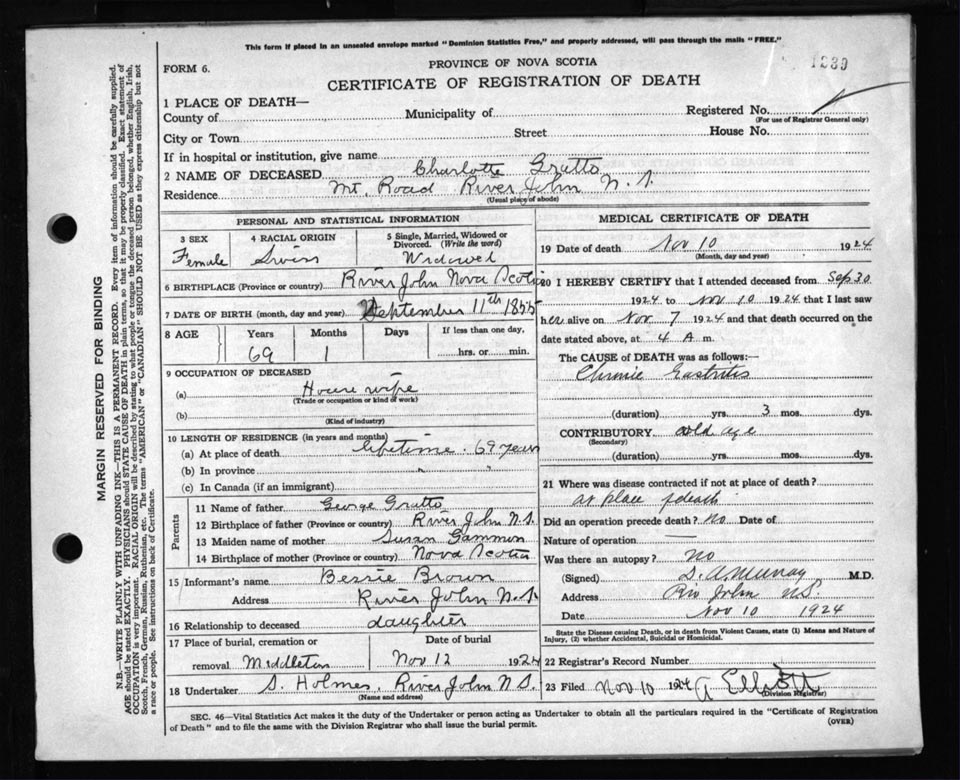 This form if placed in an unsealed envelope marked "Dominion Statistics Free," and properly addressed, will pass through the mails "FREE."
1339
FORM 6.
PROVINCE OF NOVA SCOTIA
CERTIFICATE OF REGISTRATION OF DEATH
1 PLACE OF DEATH—
County of Municipality of Registered No.
(For use of Registrar General only)
City or Town Street House No.
If in hospital or institution, give name
2 NAME OF DECEASED Charlotte Gratto
Residence Mt. Road River John N. S.
(Usual place of abode)
PERSONAL AND STATISTICAL INFORMATION
3 SEX
Female
4 RACIAL ORIGIN
Swiss
5 Single, Married, Widowed or Divorced. (Write the word)
Widowed
6 BIRTHPLACE (Province or country) River John Nova Scotia
7 DATE OF BIRTH (month, day and year) September 11th 1855
8 AGE Years Months Days If less than one day,
69 1 hrs. or min.
9 OCCUPATION OF DECEASED
(a) House wife
(Trade or occupation or kind of work)
(b)
(Kind of industry)
10 LENGTH OF RESIDENCE (in years and months)
(a) At place of death lifetime. 69 years
(b) In province " "
(c) In Canada (if an immigrant)
Parents
11 Name of father George Gratto
12 Birthplace of father (Province or country) River John N.S.
13 Maiden name of mother Susan Gammon
14 Birthplace of mother (Province or country) Nova Scotia
15 Informant's name Bessie Brown
Address River John N.S.
16 Relationship to deceased daughter
17 Place of burial, cremation or Date of burial
removal Middleton Nov 12 1924
18 Undertaker S. Holmes. River John N.S.
(Name and address)
MEDICAL CERTIFICATE OF DEATH
19 Date of death Nov 10 1924
(Month, day and year)
20 I HEREBY CERTIFY that I attended deceased from Sep 30
1924 to Nov 10 1924 that I last saw
her alive on Nov 7 1924 and that death occurred on the
date stated above, at 4 A m.
The CAUSE of DEATH was as follows:—
Chronic Gastritis
(duration) yrs. 3 mos. dys.
CONTRIBUTORY old age
(Secondary)
(duration) yrs. mos. dys.
21 Where was disease contracted if not at place of death?
at place of death
Did an operation precede death? No Date of
Nature of operation —
Was there an autopsy? no
(Signed) S. A. Murray M.D.
Address Riv John N.S.
Date Nov 10 1924
State the Disease causing Death, or in death from Violent Causes, state (1) Means and Nature of
Injury, (2) whether Accidental, Suicidal or Homicidal.
22 Registrar's Record Number
23 Filed Nov 10 1924 A Elliott
(Division Registrar)
SEC. 46—Vital Statistics Act makes it the duty of the Undertaker or person acting as Undertaker to obtain all the particulars required in the "Certificate of Registration
of Death" and to file the same with the Division Registrar who shall issue the burial permit. (OVER)
MARGIN RESERVED FOR BINDING
N.B.—WRITE PLAINLY WITH UNFADING INK—THIS IS A PERMANENT RECORD. Every item of information should be carefully supplied.
AGE should be stated EXACTLY. PHYSICIANS should STATE CAUSE OF DEATH in plain terms, so that it may be properly classified. Exact statement of
OCCUPATION is very important. RACIAL ORIGIN will be described by stating to what people or tongue the deceased person belonged, whether English, Irish,
Scotch, French, German, Russian, Ruthenian, etc. The terms "AMERICAN" or "CANADIAN" SHOULD NOT BE USED as they express citizenship but not
a race or people. See instructions on back of Certificate.